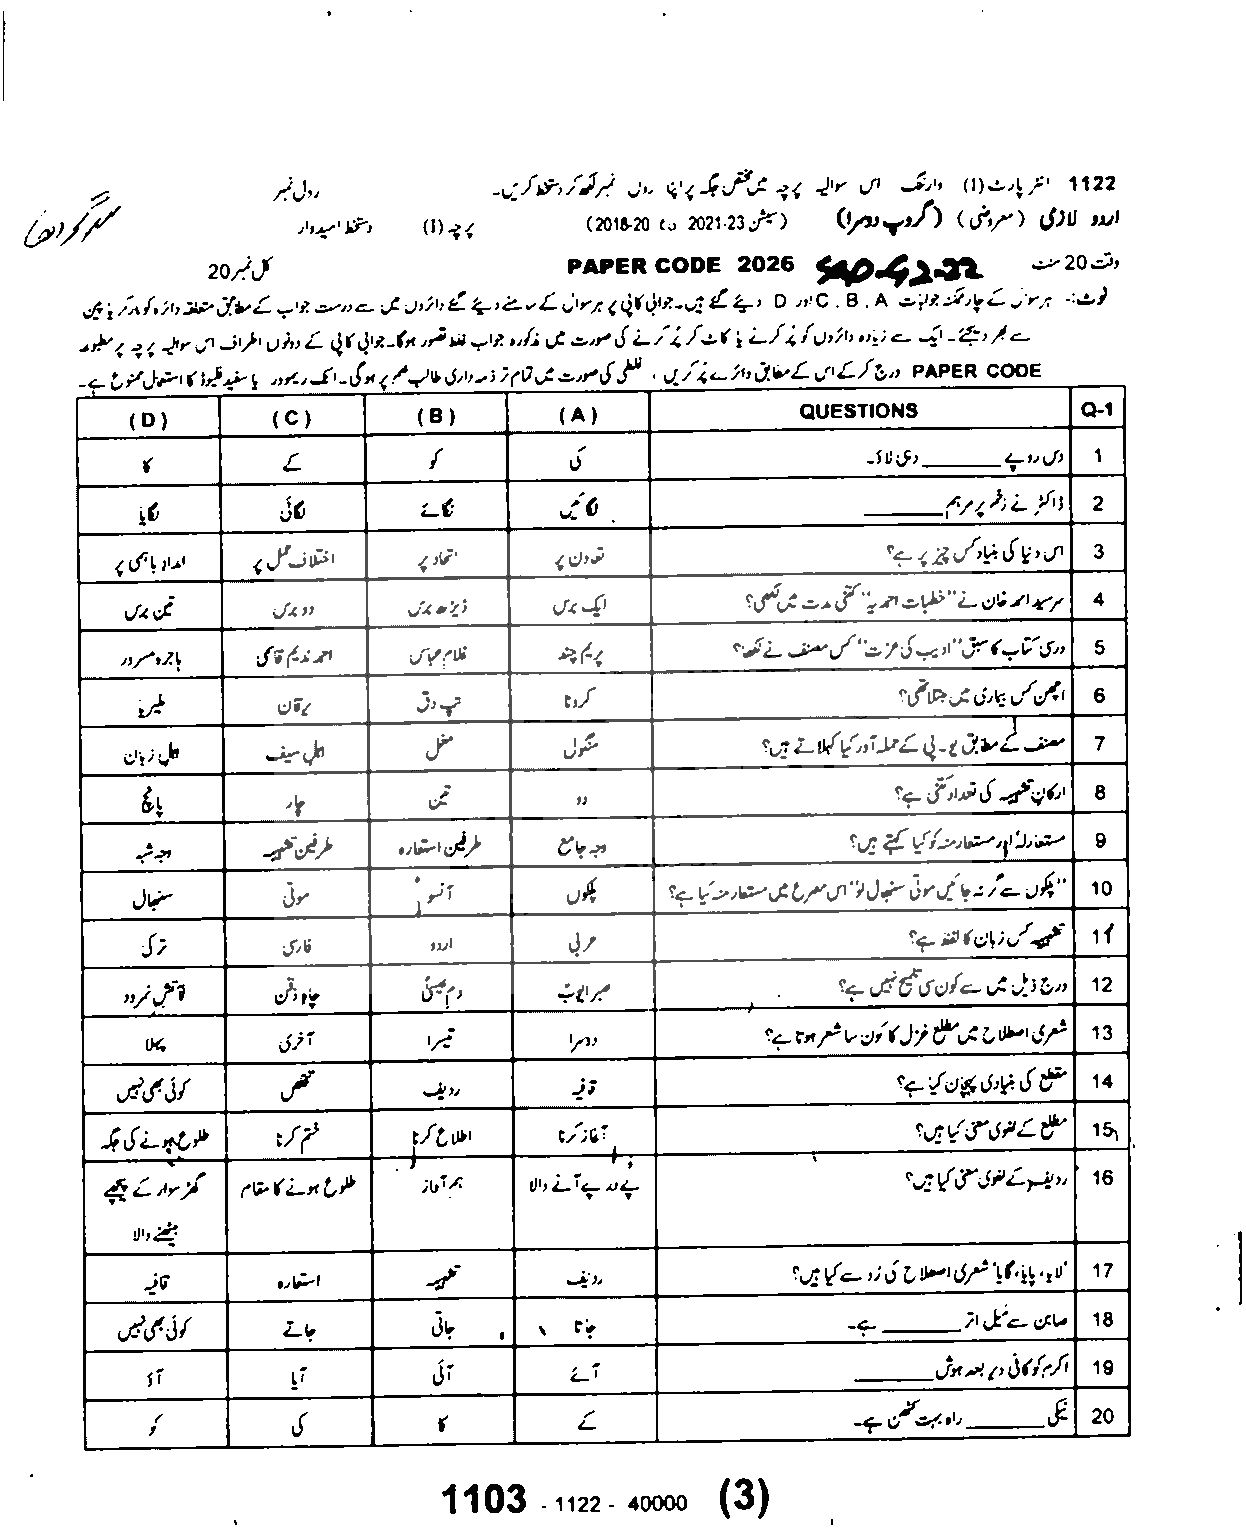 1122 انٹر پارٹ (I) وارننگ اس سوالیہ پرچہ میں مختص جگہ پر اپنا رول نمبر لکھ کر دستخط کریں۔ رول نمبر
اردو لازمی (معروضی) (گروپ دوسرا) (سیشن 2021-23 to 2018-20) پرچہ (I) دستخط امیدوار
وقت 20 منٹ PAPER CODE 2026 کل نمبر 20
نوٹ:- ہر سوال کے چار ممکنہ جوابات C، B، A اور D دیئے گئے ہیں۔ جوابی کاپی پر ہر سوال کے سامنے دیئے گئے دائروں میں سے درست جواب کے مطابق متعلقہ دائرہ کو مارکر یا پین
سے بھر دیجئے۔ ایک سے زیادہ دائروں کو پُر کرنے یا کاٹ کر پُر کرنے کی صورت میں مذکورہ جواب غلط تصور ہوگا۔ جوابی کاپی کے دونوں اطراف اس سوالیہ پرچہ پر مطبوعہ
PAPER CODE درج کر کے اس کے مطابق دائرے پُر کریں، غلطی کی صورت میں تمام تر ذمہ داری طالب علم پر ہوگی۔ انک ریموور یا سفید فلیوڈ کا استعمال ممنوع ہے۔
Q-1 QUESTIONS (A) (B) (C) (D)
1 دس روپے ______ دہی لاؤ۔ کی کو کے کا
2 ڈاکٹر نے زخم پر مرہم ______ لگائیں لگائے لگائی لگایا
3 اس دنیا کی بنیاد کس چیز پر ہے؟ تعاون پر اتحاد پر اختلاف عمل پر امداد باہمی پر
4 سرسید احمد خان نے "خطبات احمدیہ" کتنی مدت میں لکھی؟ ایک برس ڈیڑھ برس دو برس تین برس
5 درسی کتاب کا سبق "ادیب کی عزت" کس مصنف نے لکھا؟ پریم چند غلام عباس احمد ندیم قاسمی ہاجرہ مسرور
6 اچھن کس بیماری میں مبتلا تھی؟ کرونا تپ دق یرقان ملیریا
7 مصنف کے مطابق یو۔پی کے حملہ آور کیا کہلاتے ہیں؟ منگول مغل اہل سیف اہل زبان
8 ارکانِ تشبیہ کی تعداد کتنی ہے؟ دو تین چار پانچ
9 مستعار لہٗ اور مستعار منہ کو کیا کہتے ہیں؟ وجہ جامع طرفین استعارہ طرفین تشبیہ وجہ شبہ
10 "پلکوں سے گر نہ جائیں موتی سنبھال لو" اس مصرع میں مستعار منہ کیا ہے؟ پلکوں آنسو موتی سنبھال
11 تشبیہ کس زبان کا لفظ ہے؟ عربی اردو فارسی ترکی
12 درج ذیل میں سے کون سی تلمیح نہیں ہے؟ صبر ایوبؑ دم عیسیٰؑ چاہ ذقن آتش نمرود
13 شعری اصطلاح میں مطلع غزل کا کون سا شعر ہوتا ہے؟ دوسرا تیسرا آخری پہلا
14 مقطع کی بنیادی پہچان کیا ہے؟ قافیہ ردیف تخلص کوئی بھی نہیں
15 مطلع کے لغوی معنی کیا ہیں؟ آغاز کرنا اطلاع کرنا ختم کرنا طلوع ہونے کی جگہ
16 ردیف کے لغوی معنی کیا ہیں؟ پے در پے آنے والا ہم آغاز طلوع ہونے کا مقام گھڑ سوار کے پیچھے
بیٹھنے والا
17 'لایا، پایا، گایا' شعری اصطلاح کی رُو سے کیا ہیں؟ ردیف تشبیہ استعارہ قافیہ
18 صابن سے میل اتر ______ ہے۔ جاتا جاتی جاتے کوئی بھی نہیں
19 اکرم کو کافی دیر بعد ہوش ______ آئے آئی آیا آؤ
20 نیکی ______ راہ بہت کٹھن ہے۔ کے کا کی کو
1103 - 1122 - 40000 (3)